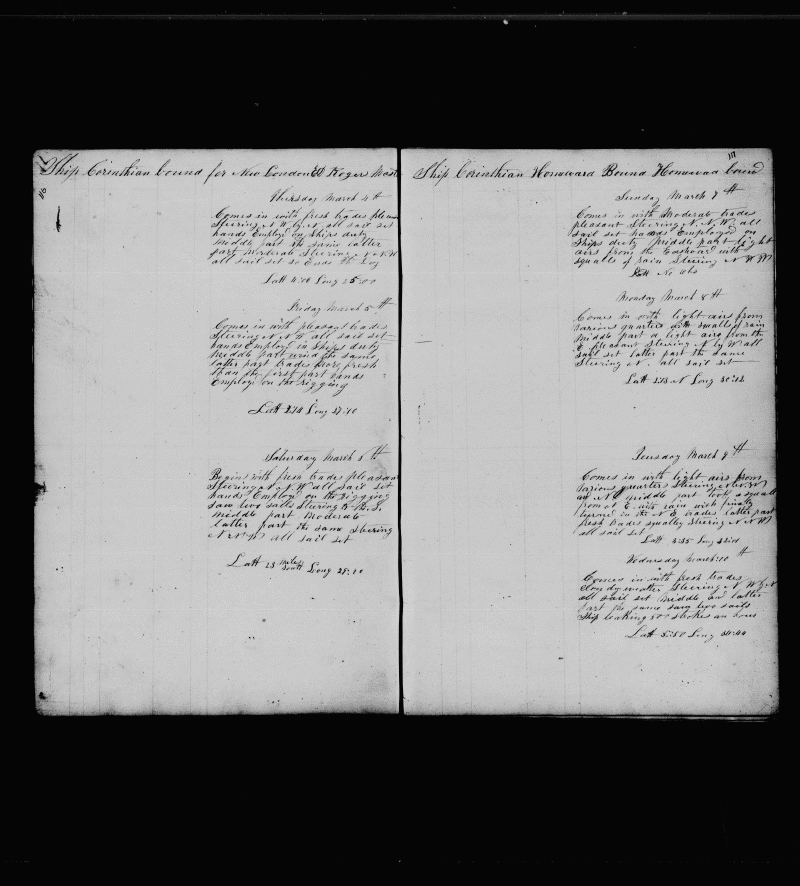 116
Ship Corinthian bound for New London Roger Mast
Thursday March 4th
Comes in with fresh trades pleasan
Steering N W by N all sail set
hands Employd on Ships duty
middle part the same latter
part Moderate Steering N N W
all sail set So Ends this Day
Latt 4:00 Long 25:00
Friday March 5th
Comes in with pleasant trades
Steering N N W all sail set
hands Employd in Ships duty
middle part wind the same
latter part trades more fresh
than the first part hands
Employd on the rigging
Latt Long 27:10
Saturday March 6th
Begins with fresh trades pleasan
Steering N N W all sail set
hands Employd on the rigging
saw two sails Steering to the S.
middle part Moderate
latter part the same steering
N N W all sail set
Latt 23 miles south Long 28:20
117
Ship Corinthian Homeward Bound Homeward bound
Sunday March 7th
Comes in with Moderate trades
pleasant Steering N. N. W. all
sail set hands Employed on
Ships duty middle part light
airs from the Eastward with
squalls of rain Steering N W
Latt No obs
Monday March 8th
Comes in with light airs from
various quarters with smalls of rain
middle part light airs from the
E pleasant steering N by W all
sail set latter part the same
Steering N. all sail set
Latt N Long 30:12
Tuesday March 9th
Comes in with light airs from
various quarters Steering
middle part took a squall
from of E. with rain wich finaly
turned in the N E trades latter part
fresh trades squalley Steering N N W
all sail set
Latt 3:35 Long
Wednesday March 10th
Comes in with fresh trades
cloudy weather Steering N W by N
all sail set middle an latter
part the same saw two sails
Ship leaking 800 strokes an hour
Latt 5:50 Long 34:44